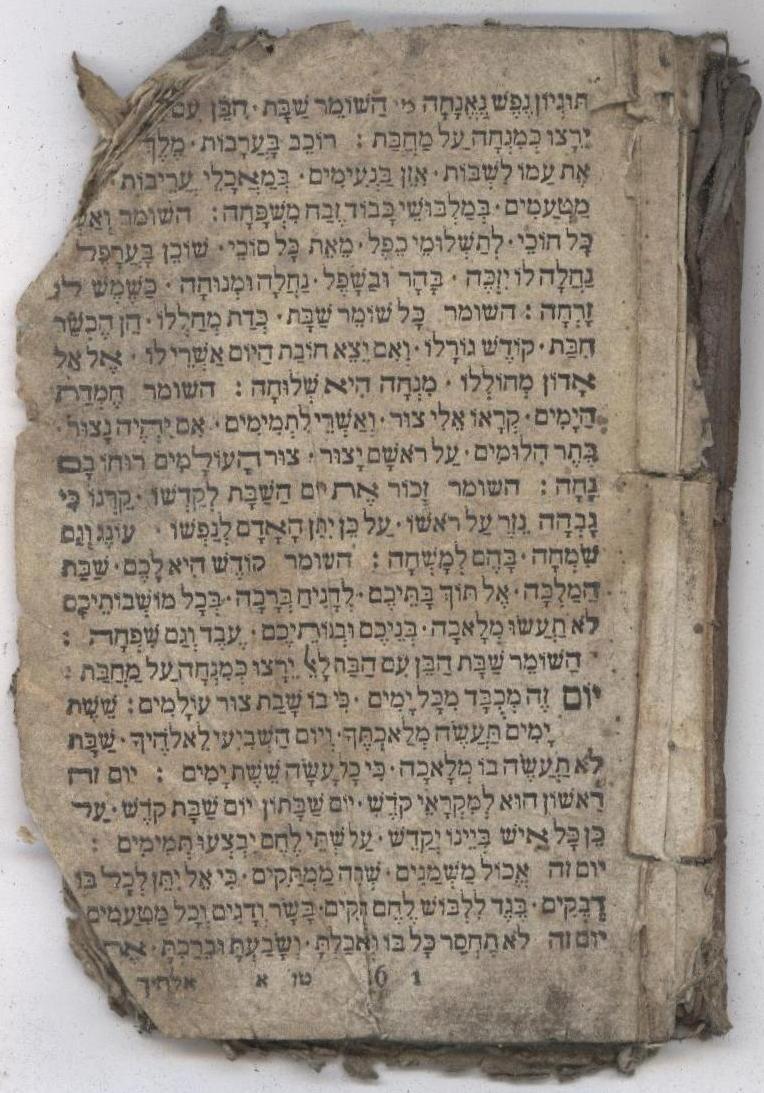 תּוּגְיוֹן נֶפֶשׁ נֶאֱנָחָה הַשּׁוֹמֵר שַׁבָּת · הַבֵּן עִם
יֵרָצוּ כְּמִנְחָה עַל מַחֲבַת : רוֹכֵב בָּעֲרָבוֹת · מֶלֶךְ
אֶת עַמּוֹ לִשְׁבּוֹת · אִזֵּן בַּנְּעִימִים · בְּמַאֲכָלֵי עֲרֵיבוֹת
מַטְעַמִּים · בְּמַלְבּוּשֵׁי כָבוֹד זֶבַח מִשְׁפָּחָה : השומר
כָּל חוֹכֵי · לְתַשְׁלוּמֵי כֵפֶל · מֵאֵת כָּל סוֹכֵי · שׁוֹכֵן בָּעֲרָפֶל
נַחֲלָה לוֹ יִזְכֶּה · בָּהָר וּבַשָּׁפֶל · נַחֲלָה וּמְנוּחָה · כַּשֶּׁמֶשׁ לוֹ
זָרְחָה : השומר כָּל שׁוֹמֵר שַׁבָּת · כְּדַת מֵחַלְּלוֹ · הֵן הֶכְשֵׁר
חִבַּת · קוֹדֶשׁ גּוֹרָלוֹ · וְאִם יֵצֵא חוֹבַת הַיּוֹם אַשְׁרֵי לוֹ · אֶל אֵל
אָדוֹן מְחוֹלְלוֹ · מִנְחָה הִיא שְׁלוּחָה : השומר חֶמְדַּת
הַיָּמִים · קְרָאוֹ אֵלִי צוּר · וְאַשְׁרֵי לִתְמִימִים · אִם יִהְיֶה נָצוּר ·
כֶּתֶר הִלּוּמִים · עַל רֹאשָׁם יָצוּר · צוּר הָעוֹלָמִים רוּחוֹ בָּם
נָחָה : השומר זָכוֹר אֶת יוֹם הַשַּׁבָּת לְקַדְּשׁוֹ · קַרְנוֹ כִּי
גָבְהָה נֵזֶר עַל רֹאשׁוֹ · עַל כֵּן יִתֵּן הָאָדָם לְנַפְשׁוֹ · עוֹנֶג וְגַם
שִׂמְחָה · בָּהֶם לְמָשְׁחָה : השומר קוֹדֶשׁ הִיא לָכֶם · שַׁבַּת
הַמַּלְכָּה · אֶל תּוֹךְ בָּתֵּיכֶם · לְהָנִיחַ בְּרָכָה · בְּכָל מוֹשְׁבוֹתֵיכֶם
לֹא תַעֲשׂוּ מְלָאכָה · בְּנֵיכֶם וּבְנוֹתֵיכֶם · עֶבֶד וְגַם שִׁפְחָה :
הַשּׁוֹמֵר שַׁבָּת הַבֵּן עִם הַבַּת לָאֵל יֵרָצוּ כְּמִנְחָה עַל מַחֲבַת :
יוֹם זֶה מְכֻבָּד מִכָּל יָמִים · כִּי בוֹ שָׁבַת צוּר עוֹלָמִים : שֵׁשֶׁת
יָמִים תַּעֲשֶׂה מְלַאכְתֶּךָ · וְיוֹם הַשְּׁבִיעִי לֵאלֹהֶיךָ · שַׁבָּת
לֹא תַעֲשֶׂה בוֹ מְלָאכָה · כִּי כָל עָשָׂה שֵׁשֶׁת יָמִים : יום זה
רִאשׁוֹן הוּא לְמִקְרָאֵי קֹדֶשׁ · יוֹם שַׁבָּתוֹן יוֹם שַׁבַּת קֹדֶשׁ · עַל
כֵּן כָּל אִישׁ בְּיֵינוֹ יְקַדֵּשׁ · עַל שְׁתֵּי לֶחֶם יִבְצְעוּ תְמִימִים :
יום זה אֱכוֹל מַשְׁמַנִּים · שְׁתֵה מַמְתַּקִּים · כִּי אֵל יִתֵּן לְכָל בּוֹ
דְבֵקִים · בֶּגֶד לִלְבּוֹשׁ לֶחֶם חֻקִּים · בָּשָׂר וְדָגִים וְכָל מַטְעַמִּים
יום זה לֹא תֶחְסַר כָּל בּוֹ וְאָכַלְתָּ · וְשָׂבָעְתָּ וּבֵרַכְתָּ · אֶת
1 6 טו א אלהיך